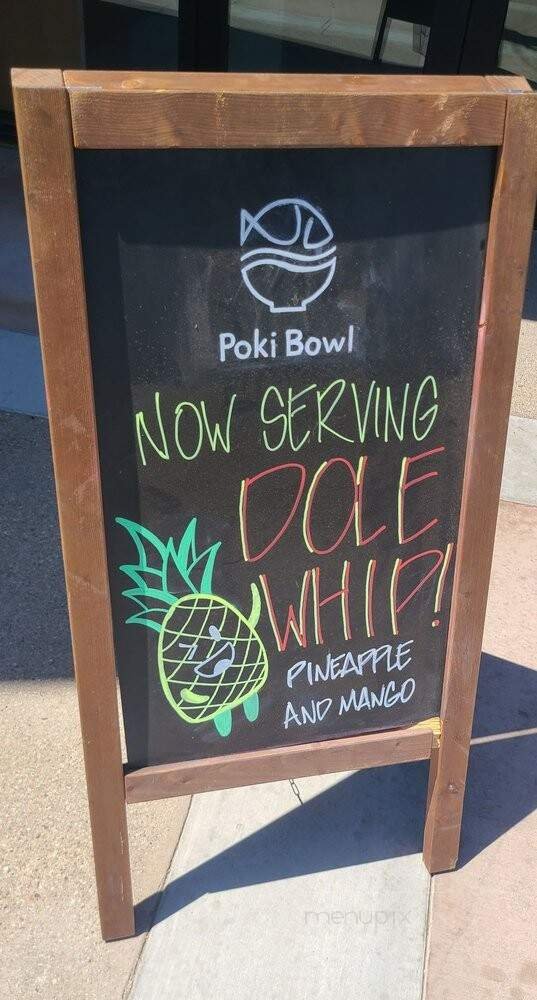 Poki Bowl
NOW SERVING
DOLE
WHIP!
PINEAPPLE
AND MANGO
menupix